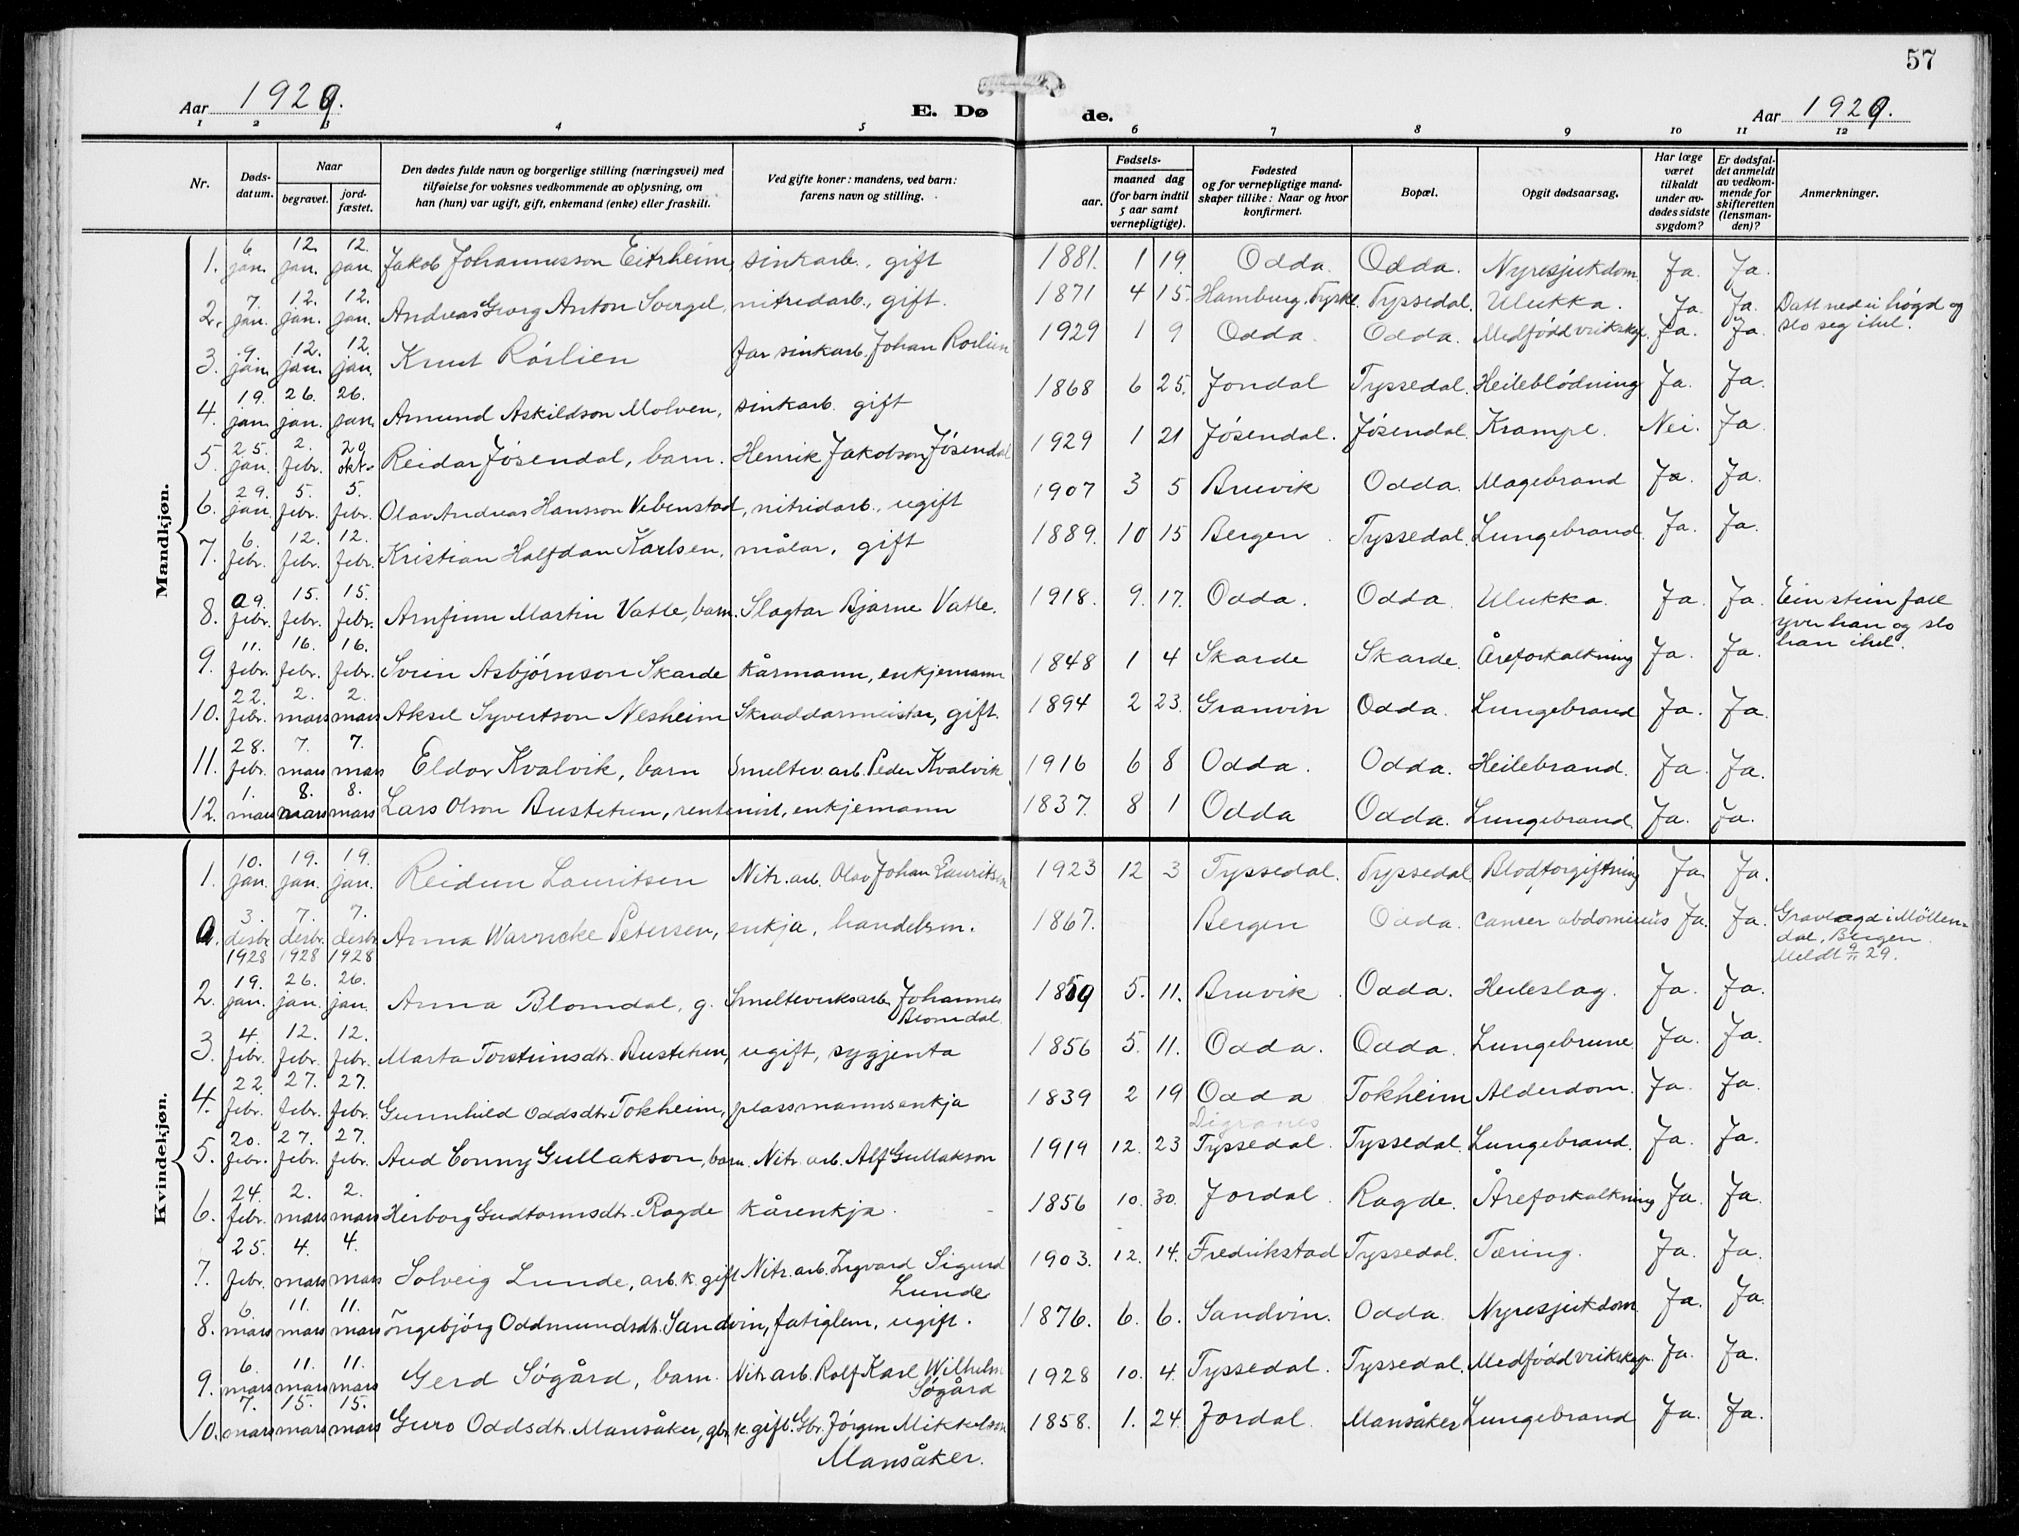 57
Aar 1929. E. Døde. Aar 1929.
1 2 3 4 5 6 7 8 9 10 11 12
Nr. | Døds-datum. | Naar begravet. | jord-fæstet. | Den dødes fulde navn og borgerlige stilling (næringsvei) med tilføielse for voksnes vedkommende av oplysning, om han (hun) var ugift, gift, enkemand (enke) eller fraskilt. | Ved gifte koner: mandens, ved barn: farens navn og stilling. | Fødsels- aar. | maaned dag (for barn indtil 5 aar samt vernepligtige). | Fødested og for vernepligtige mandskaper tillike: Naar og hvor konfirmert. | Bopæl. | Opgit dødsaarsag. | Har læge været tilkaldt under avdødes sidste sygdom? | Er dødsfaldet anmeldt av vedkommende for skifteretten (lensmanden)? | Anmerkninger.
Mandkjøn.
1. 6 jan. 12 jan. 12. jan. Jakob Johannesson Eitrheim, sinkarb., gift 1881. 1 19. Odda. Odda. Nyresjukdom Ja. Ja.
2. 7. jan. 12. jan. 12. jan. Andreas Georg Anton Svergel, nitridarb., gift. 1871 4 15. Hamburg, Tyskl. Tyssedal. Ulukka. Ja. Ja. Datt ned ei høgd og slo seg ihel.
3. 9. jan. 12. jan. 12. jan. Knut Rörlien far sinkarb. Johan Rörlien 1929 1 9 Odda. Odda. Medfødd veikskap. Ja. Ja.
4. 19. jan. 26. jan. 26. jan. Amund Askildson Molven, sinkarb. gift 1868 6 25. Jondal Tyssedal. Heileblödning Ja. Ja.
5. 25. jan. 2. febr. 20 okt. Reidar Jösendal, barn. Henrik Jakobson Jösendal 1929 1 21 Jösendal. Jösendal. Krampe. Nei. Ja.
6. 29. jan. 5. febr. 5. febr. Olav Andreas Hansson Vebenstad, nitridarb., ugift 1907 3 5 Bruvik Odda. Magebrand Ja. Ja.
7. 6. febr. 12. febr. 12. febr. Kristian Halfdan Karlsen, målar, gift 1889. 10 15 Bergen. Tyssedal. Lungebrand. Ja. Ja.
8. 9. febr. 15. febr. 15. febr. Arnfinn Martin Vatle, barn. Slagtar Bjarne Vatle. 1918. 9. 17. Odda. Odda. Ulukka. Ja. Ja. Ein stein fall yver han og slo han ihel.
9. 11. febr. 16. febr. 16. febr. Svein Asbjørnson Skarde kårmann, enkjemann 1848 1 4 Skarde Skarde. Åreforkalkning Ja. Ja.
10. 22. febr. 2. mars 2. mars Aksel Syvertson Nesheim Skraddarmeistar, gift. 1894 2 23. Granvin Odda. Lungebrand Ja. Ja.
11. 28. febr. 7. mars 7. mars Eldor Kvalvik, barn Smeltev. arb. Peder Kvalvik 1916 6 8 Odda. Odda. Heilebrand. Ja. Ja.
12. 1. mars 8. mars 8. mars Lars Olson Bustetun, rentenist, enkjemann 1837. 8 1 Odda Odda. Lungebrand. Ja. Ja.
Kvindekjøn.
1. 10. jan. 19. jan. 19. jan. Reidun Lauritsen Nitr. arb. Olav Johan Lauritsen 1923 12 3 Tyssedal. Tyssedal Blodforgiftning Ja. Ja.
a. 3. desbr. 1928 7. desbr. 1928 7. desbr. 1928 Anna Warncke Petersen, enkja, handelsm. 1867. Bergen Odda. cancer abdominis Ja. Ja. Gravlagd i Möllendal, Bergen. Meldt 9/11 29.
2. 19. jan. 26. jan. 26. jan. Anna Blomdal, g. Smelteverksarb. Johannes Blomdal. 1859 5. 11. Bruvik. Odda. Heileslag. Ja. Ja.
3. 4. febr. 12. febr. 12. febr. Marta Torsteinsdtr. Bustetun, ugift, sygjenta 1856 5. 11. Odda. Odda. Lungebrune Ja. Ja.
4. 22. febr. 27. febr. 27. febr. Gunnhild Oddsdtr. Tokheim, plassmannsenkja 1839 2 19 Odda Tokheim Alderdom. Ja. Ja.
5. 20. febr. 27. febr. 27. febr. Aud Conny Gullakson, barn. Nitr. arb. Alf Gullakson 1919 12. 23 Digranes Tyssedal. Tyssedal. Lungebrand. Ja. Ja.
6. 24. febr. 2. mars 2. mars Herborg Gudtormsdtr. Ragde kårenkja. 1856 10. 30. Jordal. Ragde. Åreforkalkning Ja. Ja.
7. 25. febr. 4. mars 4. mars Solveig Lunde, arb. k. gift Nitr. arb. Ingvard Sigurd Lunde 1903. 12. 14. Fredrikstad Tyssedal. Tæring. Ja. Ja.
8. 6. mars 11. mars 11. mars Ingebjörg Oddmundsdtr. Sandvin, fatiglem, ugift. 1876. 6. 6. Sandvin. Odda. Nyresjukdom Ja. Ja.
9. 6. mars 11. mars 11. mars Gerd Sögård, barn. Nitr. arb. Rolf Karl Wilhelm Sögård 1928 10. 4. Tyssedal. Tyssedal. Medfødd veikskap. Ja. Ja.
10. 7. mars 15. mars 15. mars Guro Oddsdtr. Mansåker, gbr. k. gift. Gbr. Jörgen Mikkelson Mansåker. 1858. 1. 24. Jordal. Mansåker Lungebrand Ja. Ja.